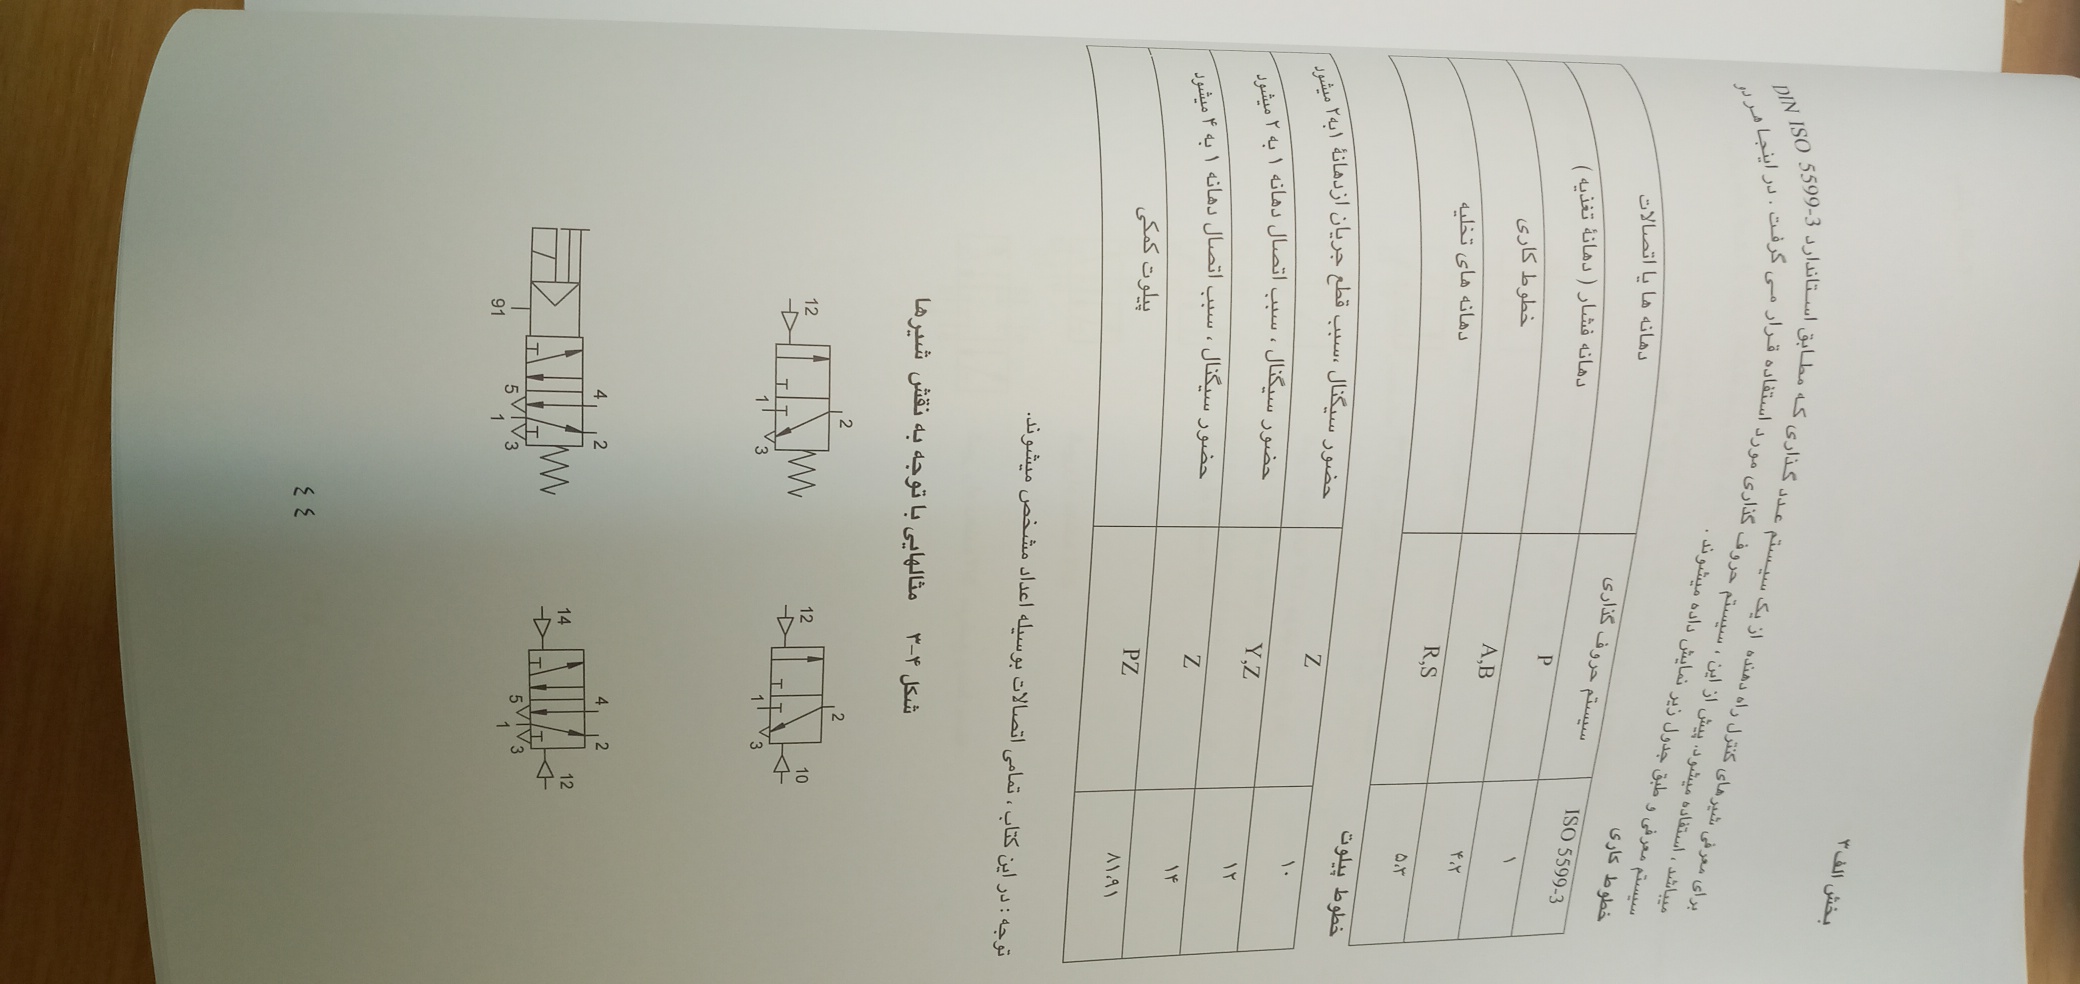 بخش الف ۳
برای معرفی شیرهای کنترل راه دهنده از یک سیستم عدد گذاری که مطابق استاندارد DIN ISO 5599-3
میباشد ، استفاده میشود. پیش از این ، سیستم حروف گذاری مورد استفاده قرار می گرفت . در اینجا هر دو
سیستم معرفی و طبق جدول زیر نمایش داده میشوند .
خطوط کاری
ISO 5599-3 سیستم حروف گذاری دهانه ها یا اتصالات
۱ P دهانه فشار ( دهانهٔ تغذیه )
۴،۲ A,B خطوط کاری
۵،۳ R,S دهانه های تخلیه
خطوط پیلوت
۱۰ Z حضور سیگنال ،سبب قطع جریان ازدهانهٔ ۱به۲ میشود
۱۲ Y,Z حضور سیگنال ، سبب اتصال دهانه ۱ به ۲ میشود
۱۴ Z حضور سیگنال ، سبب اتصال دهانه ۱ به ۴ میشود
۸۱،۹۱ PZ پیلوت کمکی
توجه : در این کتاب ، تمامی اتصالات بوسیله اعداد مشخص میشوند.
شکل ۴-۳ مثالهایی با توجه به نقش شیرها
12 2
1 3
12 2 10
1 3
91 4 2
5 1 3
14 4 2 12
5 1 3
٤٤